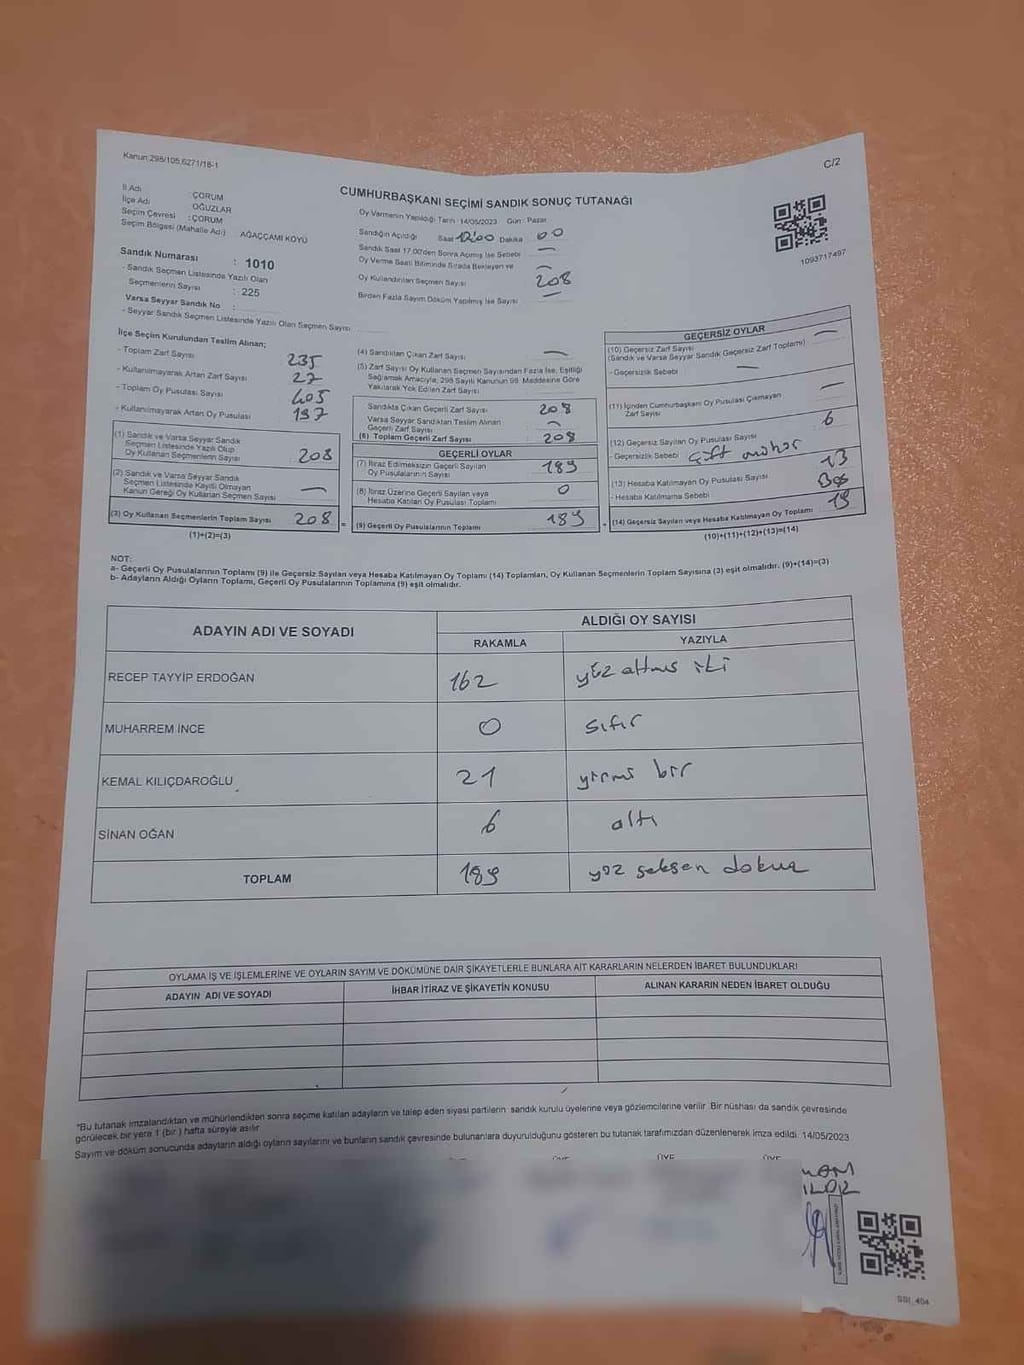 Kanun:298/105,6271/18-1
C/2
CUMHURBAŞKANI SEÇİMİ SANDIK SONUÇ TUTANAĞI
İl Adı : ÇORUM
İlçe Adı : OĞUZLAR
Seçim Çevresi : ÇORUM
Seçim Bölgesi (Mahalle Adı) AĞAÇÇAMI KÖYÜ
Sandık Numarası : 1010
- Sandık Seçmen Listesinde Yazılı Olan
Seçmenlerin Sayısı : 225
Varsa Seyyar Sandık No :
- Seyyar Sandık Seçmen Listesinde Yazılı Olan Seçmen Sayısı
Oy Vermenin Yapıldığı Tarih : 14/05/2023 Gün : Pazar
Sandığın Açıldığı Saat Dakika 00
Sandık Saat 17.00'den Sonra Açılmış İse Sebebi —
Oy Verme Saati Bitiminde Sırada Bekleyen ve —
Oy Kullandırılan Seçmen Sayısı 208
Birden Fazla Sayım Döküm Yapılmış İse Sayısı —
1093717497
İlçe Seçim Kurulundan Teslim Alınan;
- Toplam Zarf Sayısı 235
- Kullanılmayarak Artan Zarf Sayısı 27
- Toplam Oy Pusulası Sayısı 405
- Kullanılmayarak Artan Oy Pusulası 197
(1) Sandık ve Varsa Seyyar Sandık
Seçmen Listesinde Yazılı Olup
Oy Kullanan Seçmenlerin Sayısı 208
(2) Sandık ve Varsa Seyyar Sandık
Seçmen Listesinde Kayıtlı Olmayan
Kanun Gereği Oy Kullanan Seçmen Sayısı —
(3) Oy Kullanan Seçmenlerin Toplam Sayısı 208 =
(1)+(2)=(3)
(4) Sandıktan Çıkan Zarf Sayısı —
(5) Zarf Sayısı Oy Kullanan Seçmen Sayısından Fazla İse, Eşitliği
Sağlamak Amacıyla, 298 Sayılı Kanunun 98. Maddesine Göre
Yakılarak Yok Edilen Zarf Sayısı
Sandıkta Çıkan Geçerli Zarf Sayısı 208
Varsa Seyyar Sandıktan Teslim Alınan
Geçerli Zarf Sayısı —
(6) Toplam Geçerli Zarf Sayısı : 208
GEÇERLİ OYLAR
(7) İtiraz Edilmeksizin Geçerli Sayılan
Oy Pusulalarının Sayısı : 189
(8) İtiraz Üzerine Geçerli Sayılan veya
Hesaba Katılan Oy Pusulası Toplamı : 0
(9) Geçerli Oy Pusulalarının Toplamı : 189
GEÇERSİZ OYLAR
(10) Geçersiz Zarf Sayısı —
(Sandık ve Varsa Seyyar Sandık Geçersiz Zarf Toplamı)
- Geçersizlik Sebebi —
(11) İçinden Cumhurbaşkanı Oy Pusulası Çıkmayan —
Zarf Sayısı
(12) Geçersiz Sayılan Oy Pusulası Sayısı 6
- Geçersizlik Sebebi çift mühür
(13) Hesaba Katılmayan Oy Pusulası Sayısı 13
- Hesaba Katılmama Sebebi Boş
(14) Geçersiz Sayılan veya Hesaba Katılmayan Oy Toplamı 19
(10)+(11)+(12)+(13)=(14)
NOT:
a- Geçerli Oy Pusulalarının Toplamı (9) ile Geçersiz Sayılan veya Hesaba Katılmayan Oy Toplamı (14) Toplamları, Oy Kullanan Seçmenlerin Toplam Sayısına (3) eşit olmalıdır. (9)+(14)=(3)
b- Adayların Aldığı Oyların Toplamı, Geçerli Oy Pusulalarının Toplamına (9) eşit olmalıdır.
ADAYIN ADI VE SOYADI ALDIĞI OY SAYISI
RAKAMLA YAZIYLA
RECEP TAYYİP ERDOĞAN 162 yüz altmış iki
MUHARREM İNCE 0 sıfır
KEMAL KILIÇDAROĞLU 21 yirmi bir
SİNAN OĞAN 6 altı
TOPLAM 189 yüz seksen dokuz
OYLAMA İŞ VE İŞLEMLERİNE VE OYLARIN SAYIM VE DÖKÜMÜNE DAİR ŞİKAYETLERLE BUNLARA AİT KARARLARIN NELERDEN İBARET BULUNDUKLARI
ADAYIN ADI VE SOYADI İHBAR İTİRAZ VE ŞİKAYETİN KONUSU ALINAN KARARIN NEDEN İBARET OLDUĞU
"Bu tutanak imzalandıktan ve mühürlendikten sonra seçime katılan adayların ve talep eden siyasi partilerin sandık kurulu üyelerine veya gözlemcilerine verilir. Bir nüshası da sandık çevresinde
görülecek bir yere 1 (bir ) hafta süreyle asılır.
Sayım ve döküm sonucunda adayların aldığı oyların sayılarını ve bunların sandık çevresinde bulunanlara duyurulduğunu gösteren bu tutanak tarafımızdan düzenlenerek imza edildi. 14/05/2023
ÜYE ÜYE ÜYE ÜYE
SSI_404